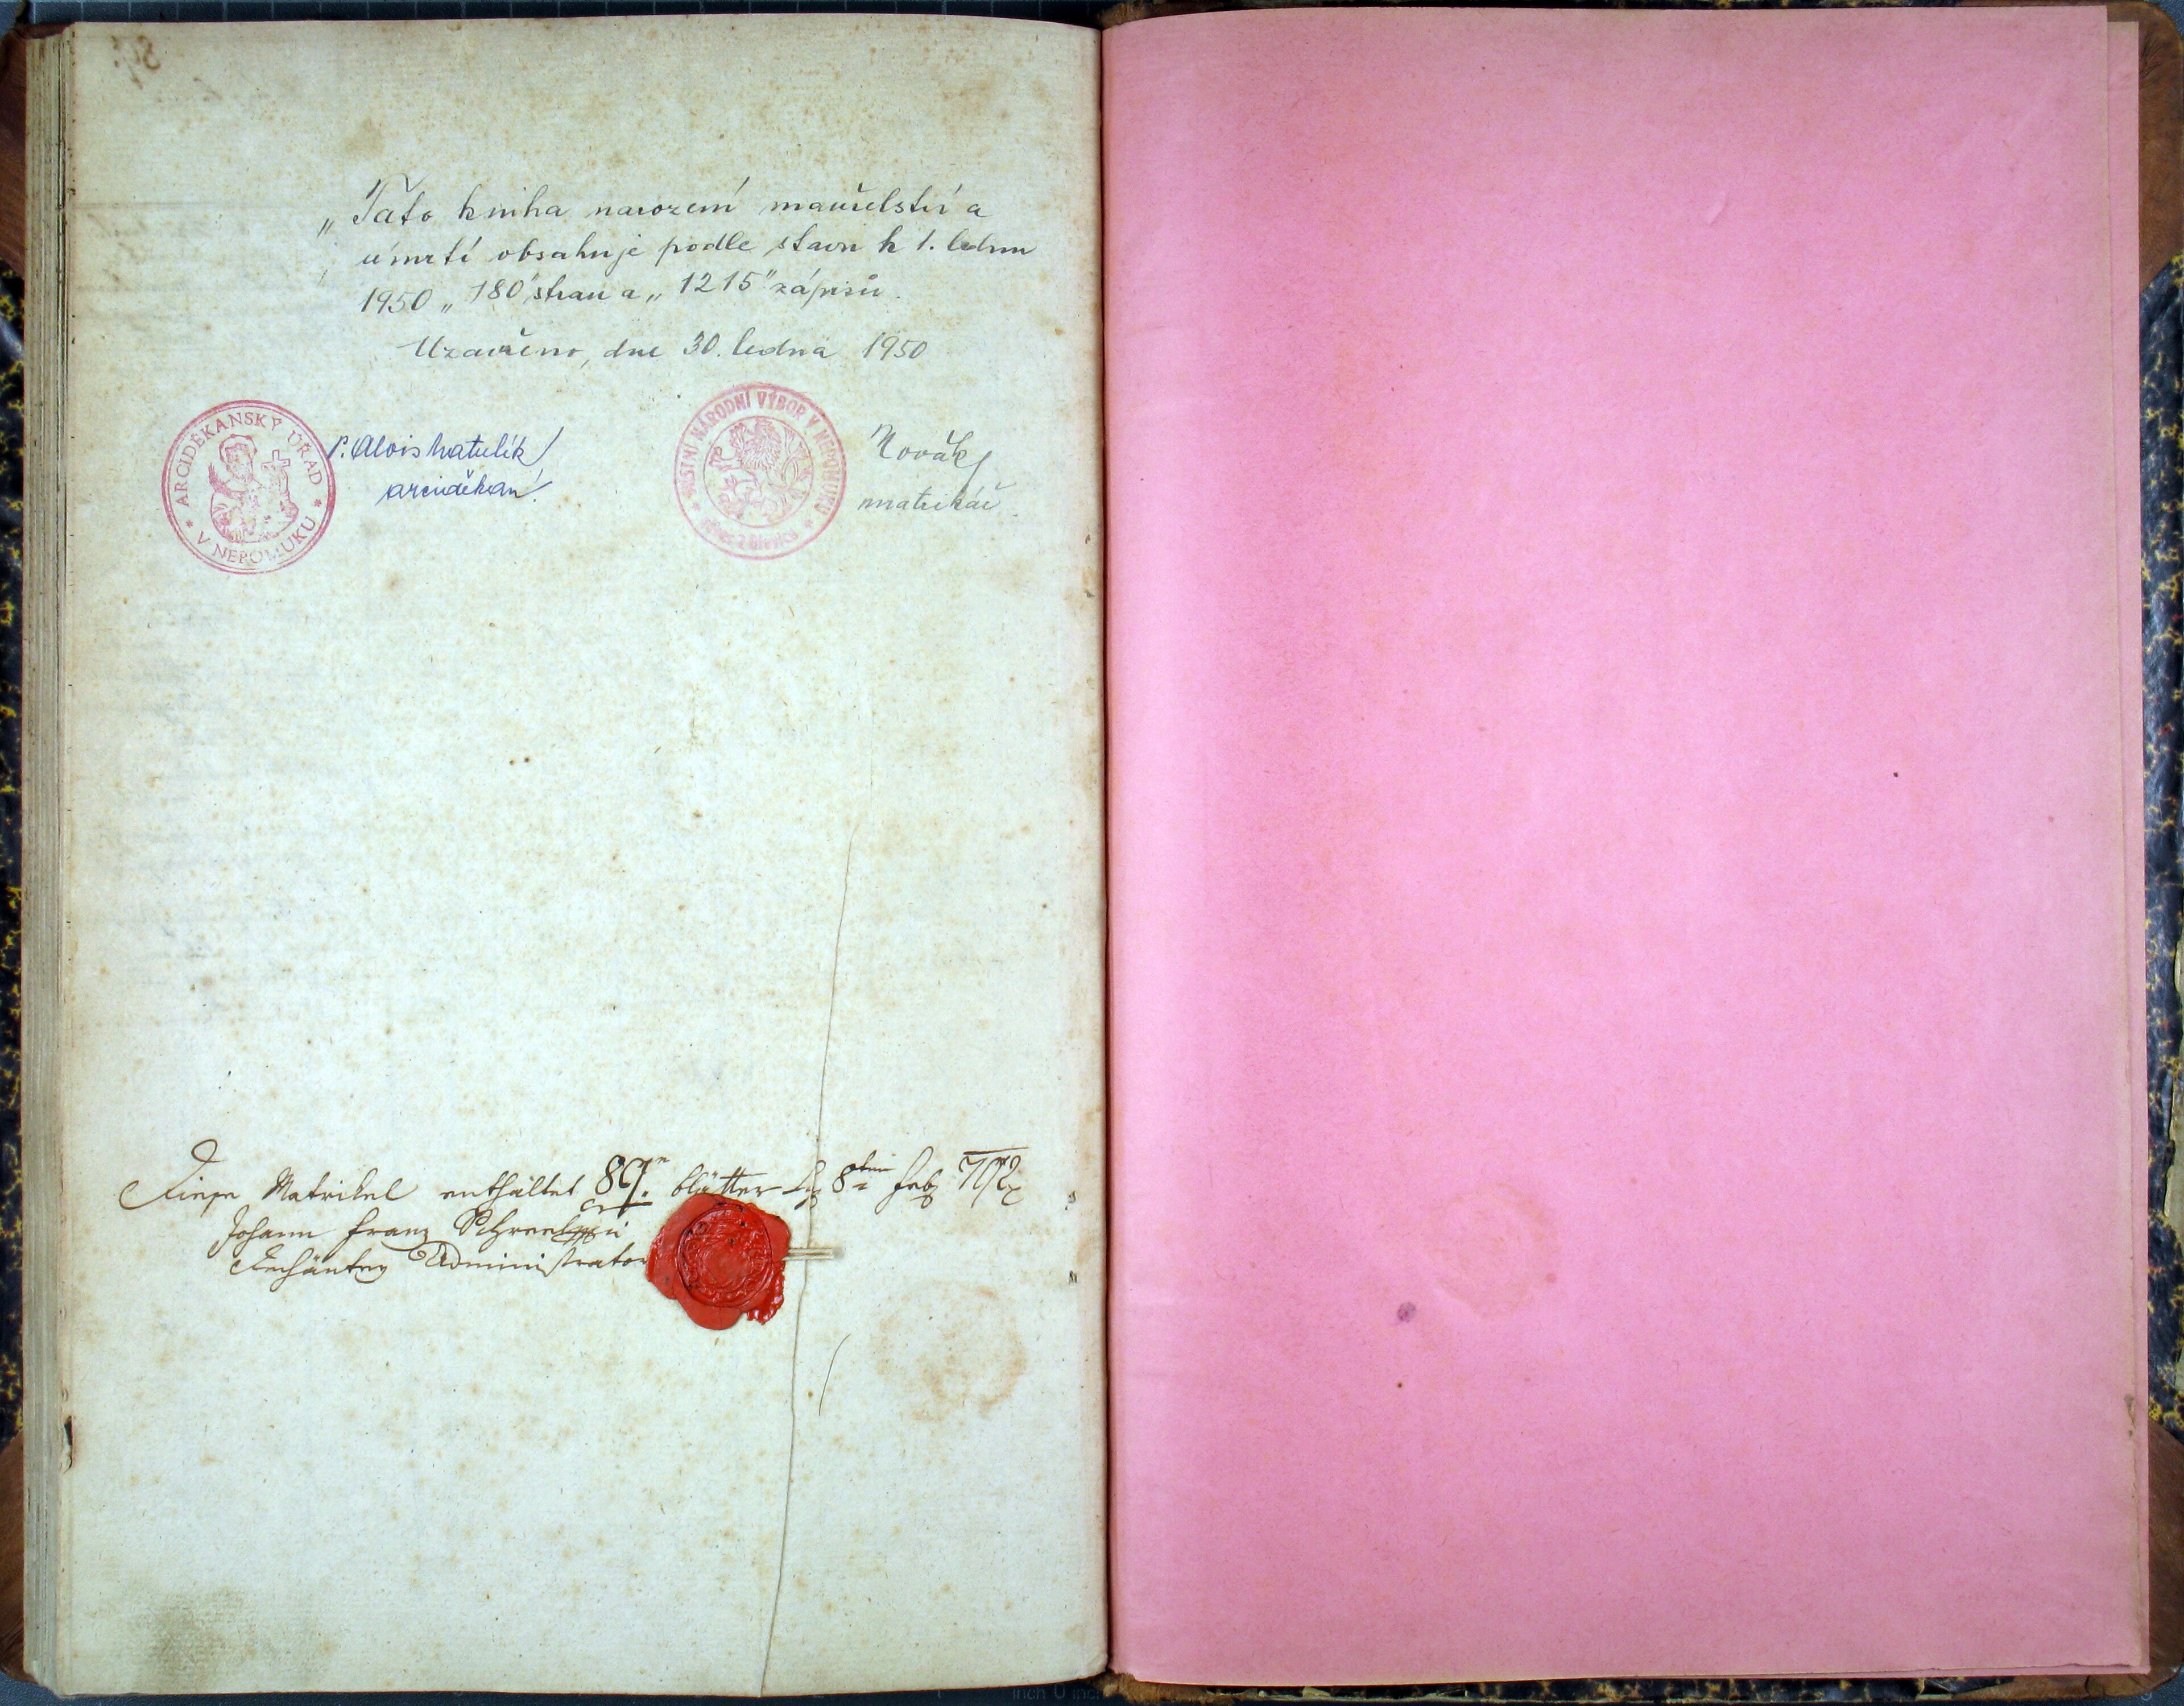 „Tato kniha narození manželství a
úmrtí obsahuje podle stavu k 1. lednu
1950 „180" stran a „1215" zápisů.
Uzavřeno, dne 30. ledna 1950
* ARCIDĚKANSKÝ ÚŘAD *
V NEPOMUKU
P. Alois Matulík
arciděkan.
* MÍSTNÍ NÁRODNÍ VÝBOR V NEPOMUKU *
okres Blovice
Novák
matrikář
Diese Matrikel enthältet 89. blätter 8ten Feb
Johann Franz
Dechantey Administrator